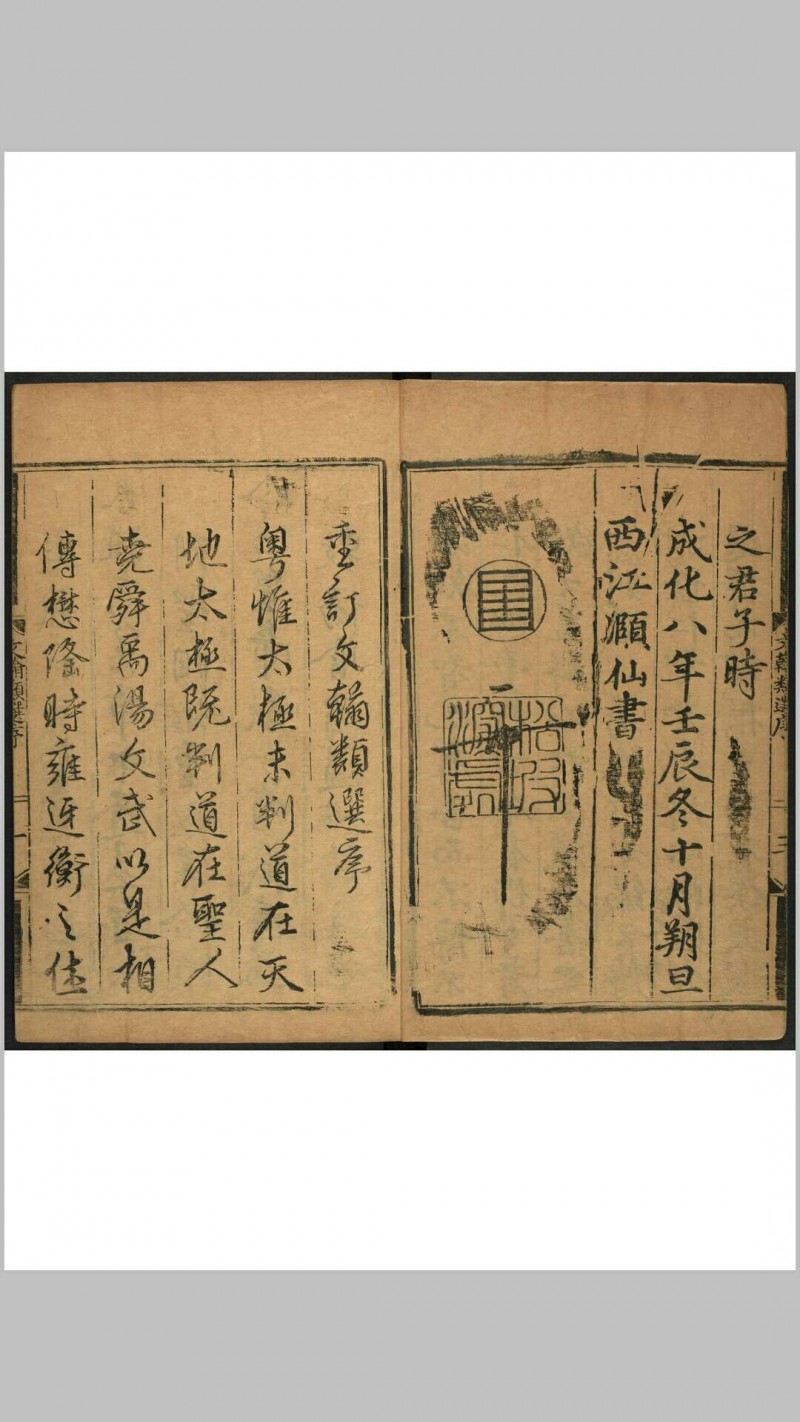 之君子時
成化八年壬辰冬十月朔旦
西江頤仙書
重訂文翰類選序
粤惟太極未判道在天
地太極既判道在聖人
堯舜禹湯文武以是相
傳懋隆時雍迓衡之
文翰類選序